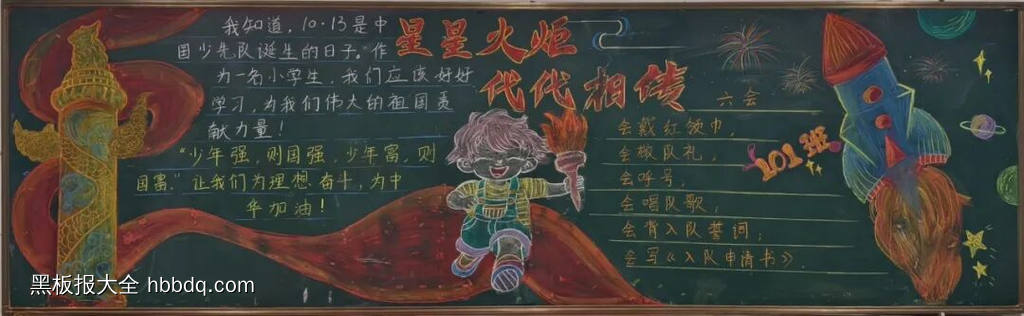 我知道，10·13是中
国少先队诞生的日子。作
为一名小学生，我们应该好好
学习，为我们伟大的祖国贡
献力量！
“少年强，则国强，少年富，则
国富.”让我们为理想奋斗，为中
华加油！
星星火炬
代代相传
六会
会戴红领巾，
会敬队礼，
会呼号，
会唱队歌，
会背入队誓词，
会写《入队申请书》.
101班
黑板报大全 hbbdq.com